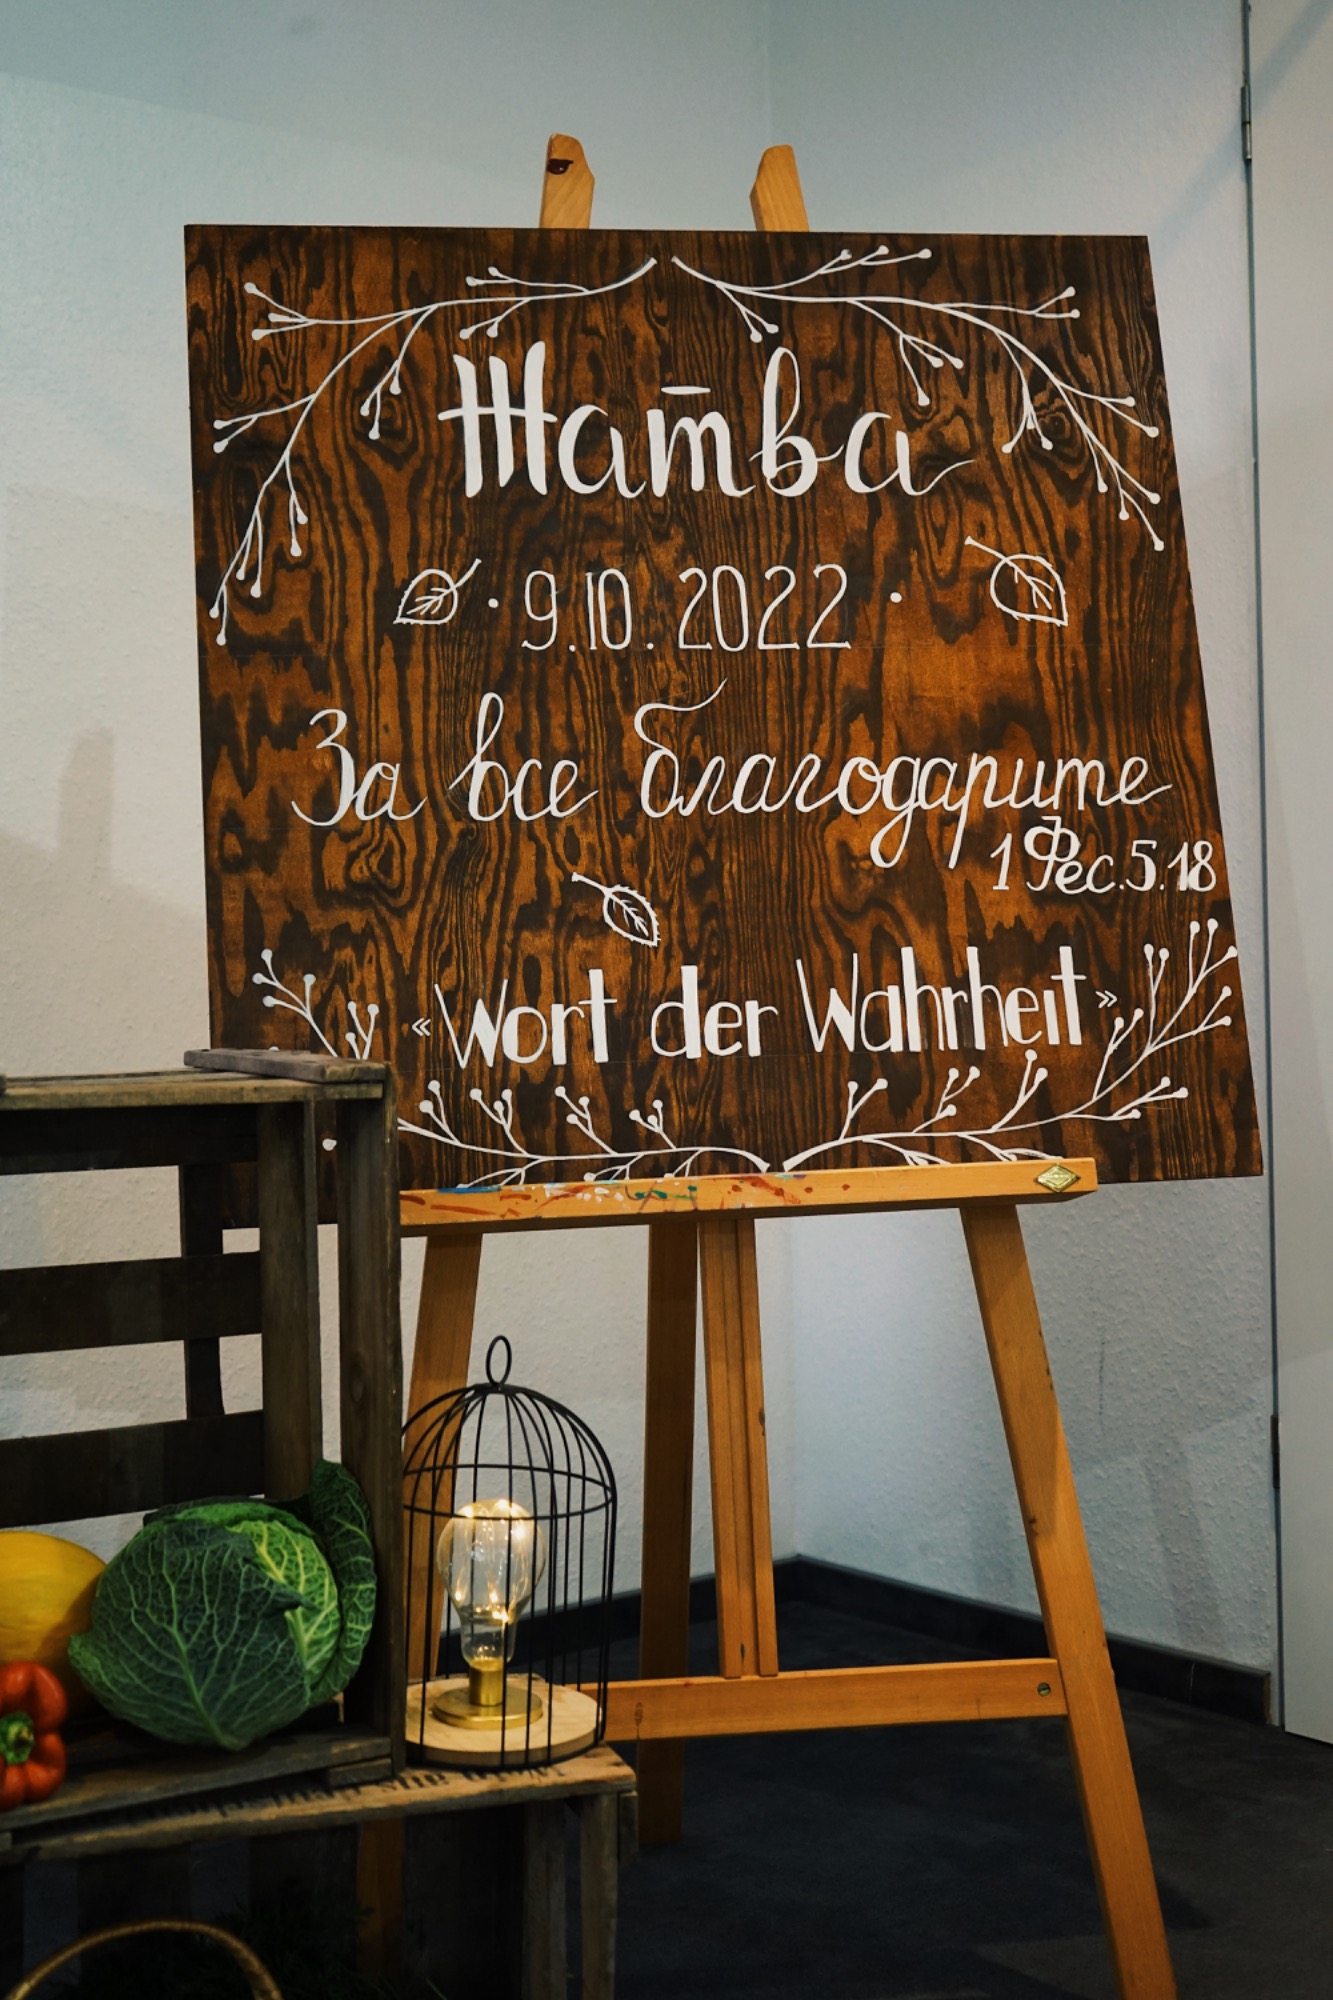 Жатва
• 9.10.2022 •
За все благодарите
1 Фес.5.18
«Wort der Wahrheit»